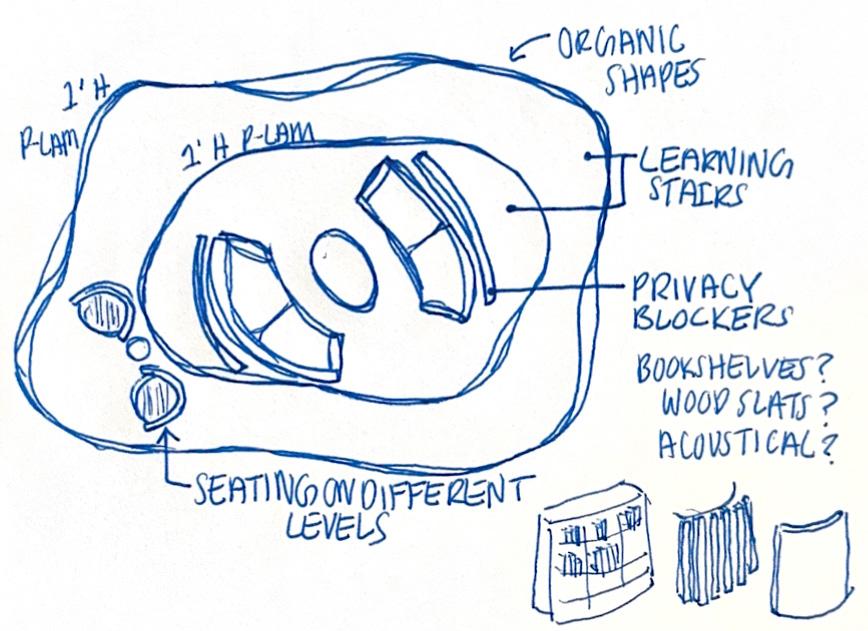 ORGANIC
SHAPES
1' H
P-LAM
1' H P-LAM
LEARNING
STAIRS
PRIVACY
BLOCKERS
BOOKSHELVES?
WOOD SLATS?
ACOUSTICAL?
SEATING ON DIFFERENT
LEVELS